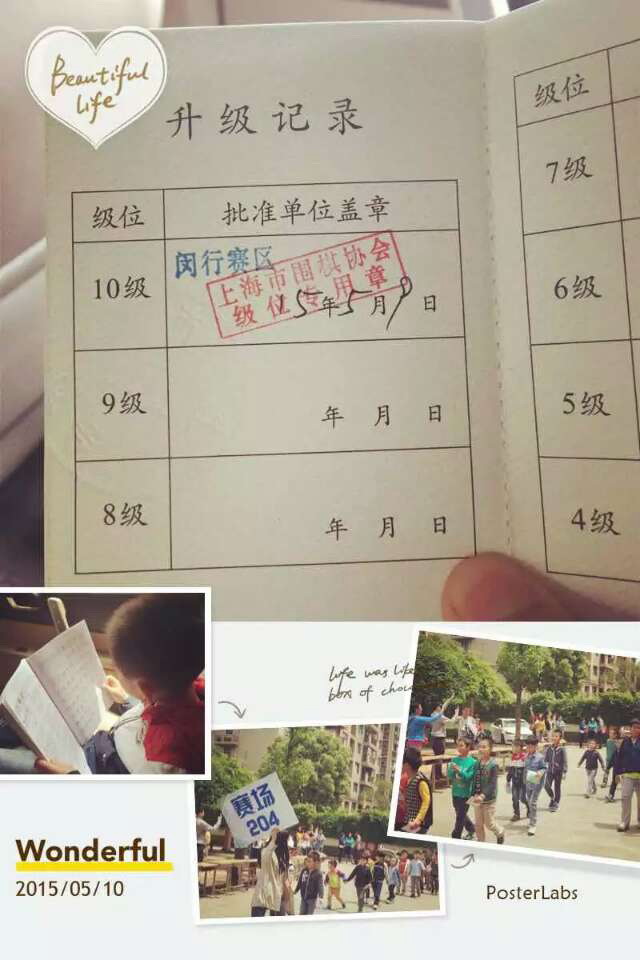 Beautiful
Life
升级记录
级位 批准单位盖章
10级 闵行赛区
上海市围棋协会
级位专用章
15年5月9日
9级 年 月 日
8级 年 月 日
级位
7级
6级
5级
4级
life was like
box of choco
赛场
204
Wonderful
2015/05/10
PosterLabs